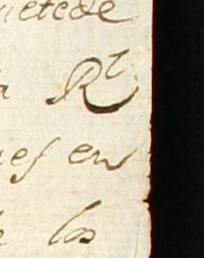 netede
a Rl
nes en
e los